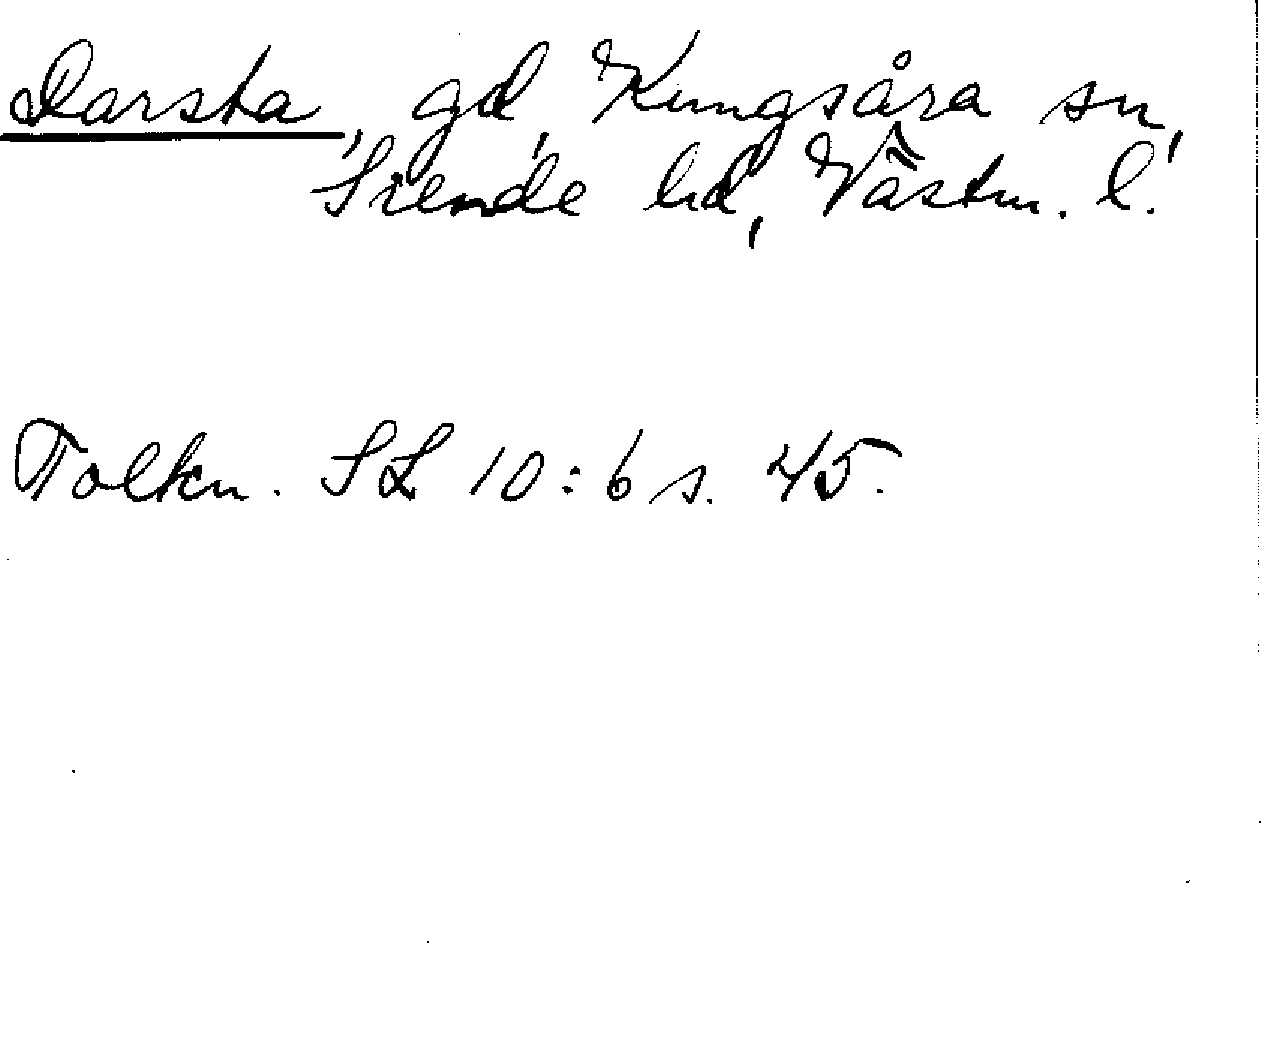 Darsta, gd, Kungsåra sn,
Siende hd, Västm. l.
Tolkn. SL 10:6 s. 45.